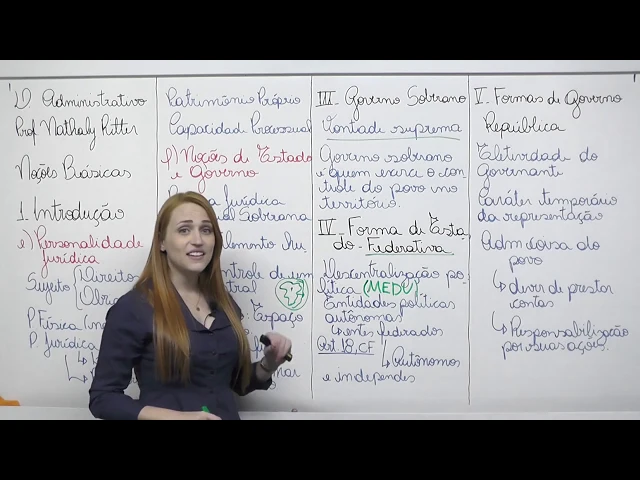 D. Administrativo
Prof. Nathaly Ritter
Noções Básicas
1. Introdução
e) Personalidade
jurídica
Sujeito
Direitos
P. Física
P. Jurídica
Patrimônio Próprio
Capacidade Processual
f) Noções de Estado
e Governo
Jurídica
Soberana
Espaço
III - Governo Soberano
Vontade suprema
Governo soberano
é quem exerce o con
trole do povo no
território.
IV - Forma de Esta
do - Federativa
Descentralização po
lítica (MEDU)
Entidades políticas
autônomas
↳ entes federados
Art. 18, CF
↳ Autônomos
e independes
V - Formas de Governo
República
Eletividade do
Governante
Caráter temporário
da representação
Adm coisa do
povo
↳ dever de prestar
contas
↳ Responsabilização
por suas ações.